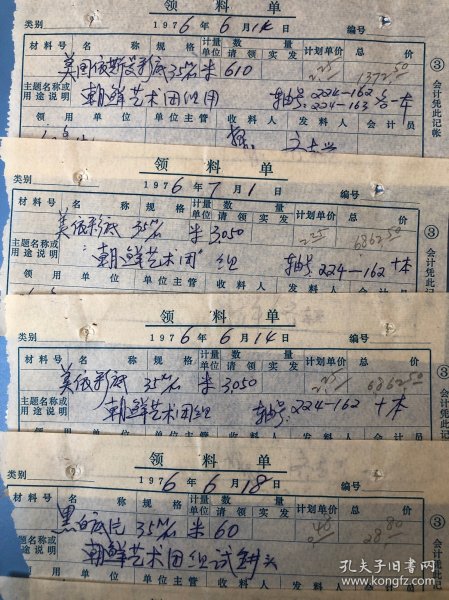 领 料 单
类别 1976年6月14日 编号
材料号 名 称 规 格 计量单位 数 量 请领 实发 计划单价 总 价
美国依斯曼彩底 35㎜ 米 610 2.25 1372.50
主题名称或用途说明 朝鲜艺术团组用 轴号 224-162 224-163 各一本
领 用 单 位 单位主管 收 料 人 发 料 人 会 计 员
③ 会计凭此记帐
领 料 单
类别 1976年7月1日 编号
材料号 名 称 规 格 计量单位 数 量 请领 实发 计划单价 总 价
美依彩底 35㎜ 米 3050 2.25 6862.50
主题名称或用途说明 "朝鲜艺术团"组 轴号 224-162 十本
领 用 单 位 单位主管 收 料 人 发 料 人 会 计 员
③ 会计凭此记
领 料 单
类别 1976年6月14日 编号
材料号 名 称 规 格 计量单位 数 量 请领 实发 计划单价 总 价
美依彩底 35㎜ 米 3050 2.25 6862.50
主题名称或用途说明 朝鲜艺术团组 轴号 224-162 十本
领 用 单 位 单位主管 收 料 人 发 料 人 会 计 员
③ 会计凭此
领 料 单
类别 1976年6月18日 编号
材料号 名 称 规 格 计量单位 数 量 请领 实发 计划单价 总 价
黑白底片 35㎜ 米 60 0.48 28.80
主题名称或用途说明 朝鲜艺术团组试斛头
领 用 单 位 单位主管 收 料 人 发 料 人
③ 会计凭此
孔夫子旧书网
kongfz.com